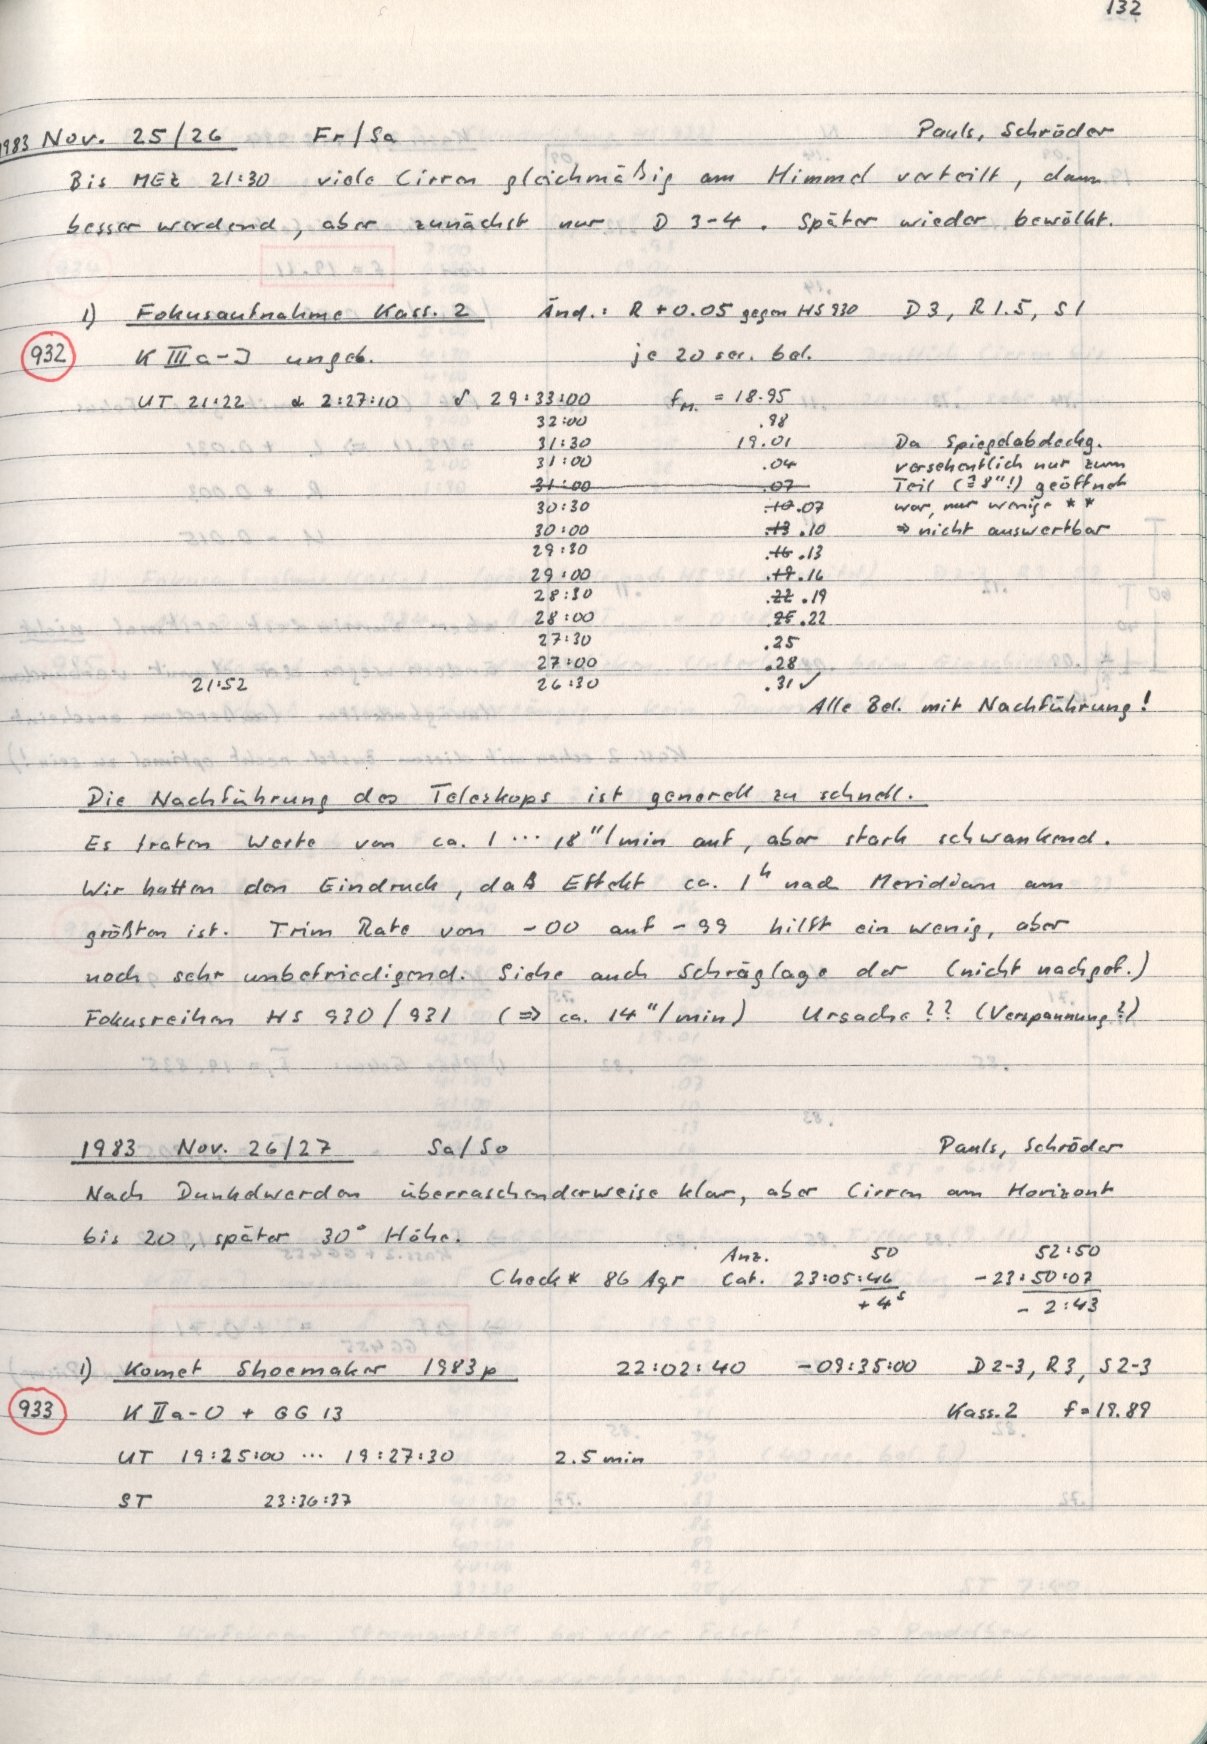 132
1983 Nov. 25/26 Fr/Sa Pauls, Schröder
Bis MEZ 21:30 viele Cirren gleichmäßig am Himmel verteilt, dann
besser werdend, aber zunächst nur D 3-4. Später wieder bewölkt.
1) Fokusaufnahme Kass. 2 Änd.: R + 0.05 gegen HS 930 D3, R1.5, S1
932 K IIIa-J ungeb. je 20 sec. bel.
UT 21:22 α 2:27:10 δ 29:33:00 fM. = 18.95
32:00 .98
31:30 19.01 Da Spiegelabdeckg.
31:00 .04 versehentlich nur zum
31:00 .07 Teil (≙ 8"!) geöffnet
30:30 .10 .07 war, nur wenige **
30:00 .13 .10 ⇒ nicht auswertbar
29:30 .16 .13
29:00 .19 .16
28:30 .22 .19
28:00 .25 .22
27:30 .25
27:00 .28
21:52 26:30 .31 ✓
Alle Bel. mit Nachführung!
Die Nachführung des Teleskops ist generell zu schnell.
Es traten Werte von ca. 1 ... 18"/min auf, aber stark schwankend.
Wir hatten den Eindruck, daß Effekt ca. 1h nach Meridian am
größten ist. Trim Rate von -00 auf -99 hilft ein wenig, aber
noch sehr unbefriedigend. Siehe auch Schräglage der (nicht nachgef.)
Fokusreihen HS 930/931 (⇒ ca. 14"/min) Ursache?? (Verspannung?)
1983 Nov. 26/27 Sa/So Pauls, Schröder
Nach Dunkelwerden überraschenderweise klar, aber Cirren am Horizont
bis 20, später 30° Höhe.
Anz. 50 52:50
Check* 86 Aqr Cat. 23:05:46 -23:50:07
+4s - 2:43
1) Komet Shoemaker 1983p 22:02:40 -09:35:00 D2-3, R3, S2-3
933 K IIa-O + GG 13 Kass. 2 f=19.89
UT 19:25:00 ... 19:27:30 2.5 min
ST 23:36:37